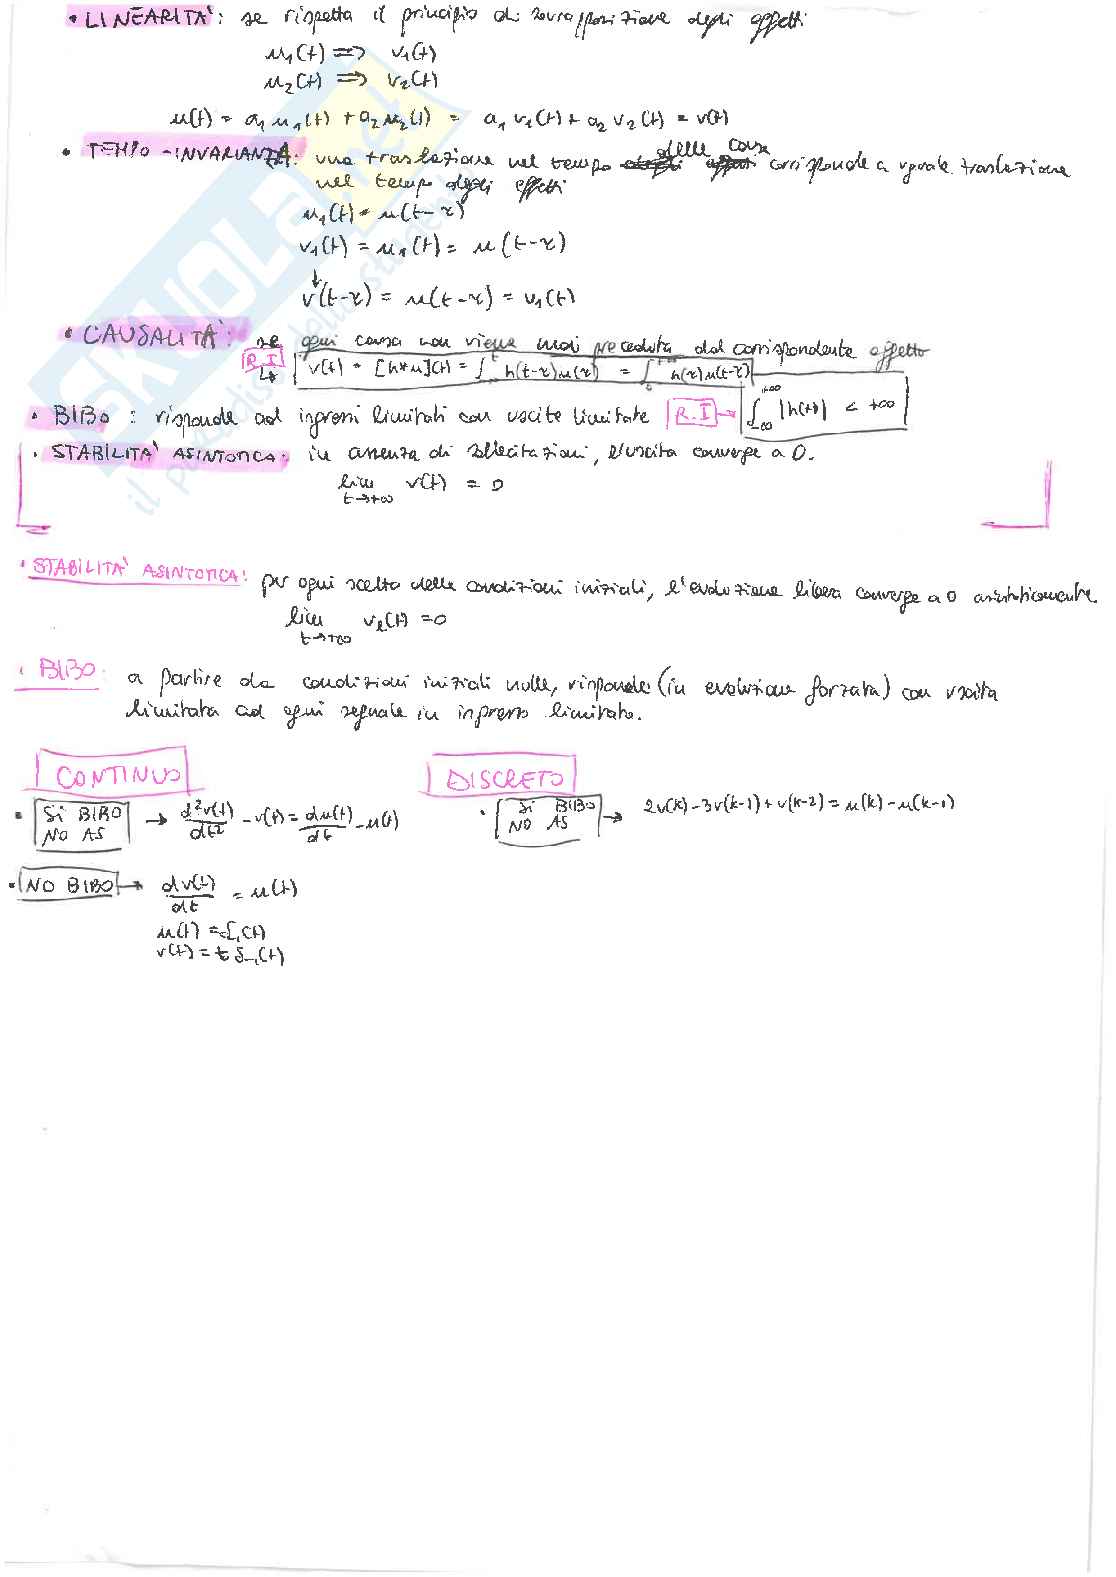 • LINEARITA': se rispetta il principio di sovrapposizione degli effetti
u₁(t) ⇒ v₁(t)
u₂(t) ⇒ v₂(t)
u(t) = a₁ u₁(t) + a₂ u₂(t) = a₁ v₁(t) + a₂ v₂(t) = v(t)
• TEMPO-INVARIANZA: una traslazione nel tempo delle cause corrisponde a uguale traslazione
nel tempo degli effetti
u₁(t) = u(t-τ)
v₁(t) = u₁(t) = u(t-τ)
↓
v(t-τ) = u(t-τ) = v₁(t)
• CAUSALITA': se ogni causa non viene mai preceduta dal corrispondente effetto
R.I ↳ v(t) = [h*u](t) = ∫ᵗ h(t-τ)u(τ) = ∫₀^{+∞} h(τ)u(t-τ)
• BIBO: risponde ad ingressi limitati con uscite limitate R.I → ∫_{-∞}^{+∞} |h(t)| < +∞
• STABILITA' ASINTOTICA: in assenza di sollecitazioni, l'uscita converge a 0.
lim t→+∞ v(t) = 0
• STABILITA' ASINTOTICA: per ogni scelta delle condizioni iniziali, l'evoluzione libera converge a 0 asintoticamente
lim t→+∞ vℓ(t) = 0
• BIBO: a partire da condizioni iniziali nulle, risponde (in evoluzione forzata) con uscita
limitata ad ogni segnale in ingresso limitato.
CONTINUO
• SI BIBO NO AS → d²v(t)/dt² - v(t) = du(t)/dt - u(t)
• NO BIBO → dv(t)/dt = u(t)
u(t) = δ₋₁(t)
v(t) = t δ₋₁(t)
DISCRETO
• SI BIBO NO AS → 2v(k)-3v(k-1)+v(k-2) = u(k)-u(k-1)
SKUOLA.net